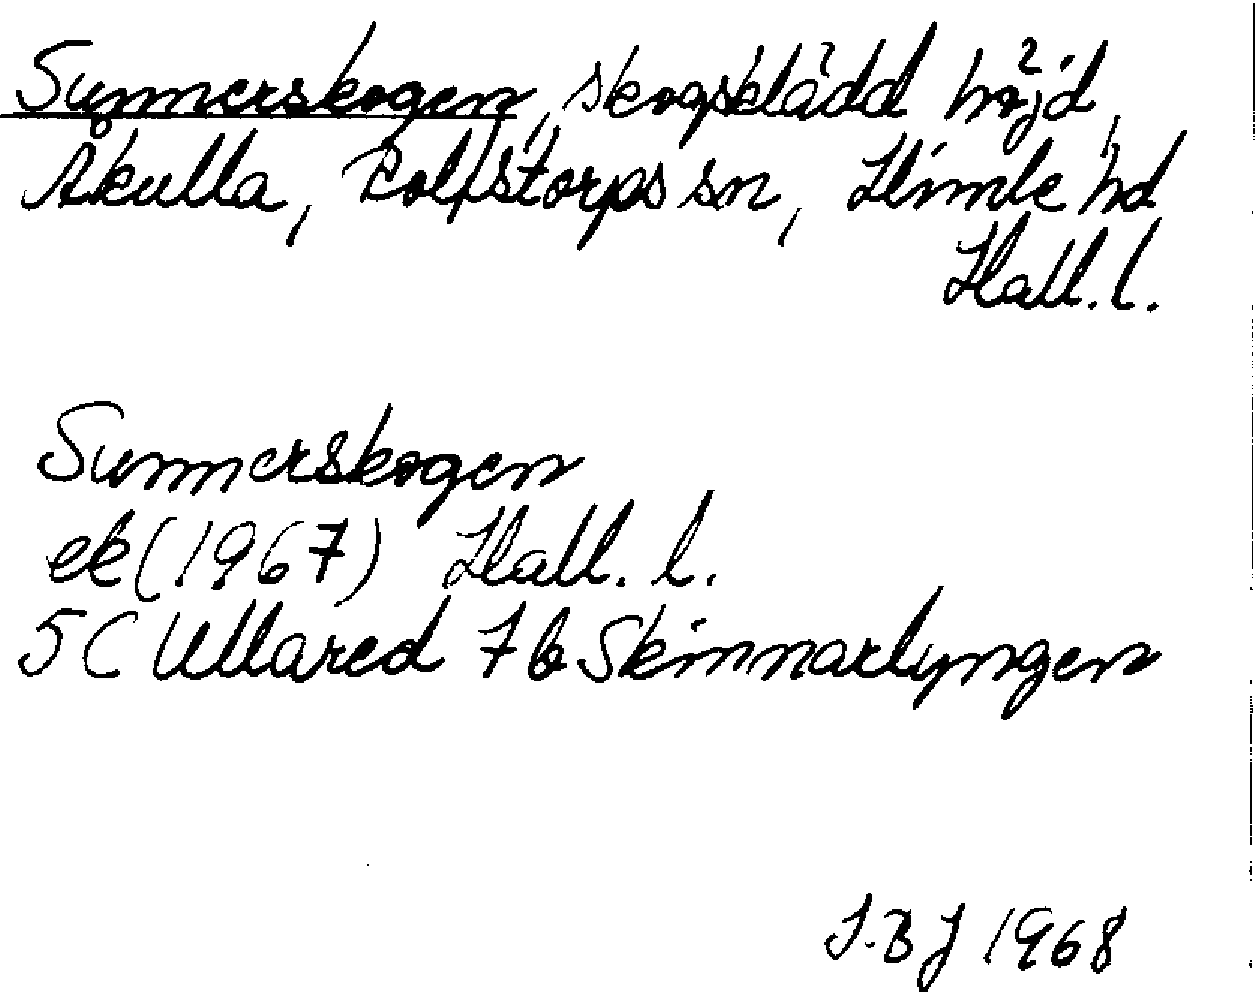 Sunnerskogen, skogsklädd höjd,
Åkulla, Rolfstorps sn, Himle hd
Hall. l.
Sunnerskogen
ek (1967) Hall. l.
5C Ullared 7b Skinnarlyngen
J.BJ 1968